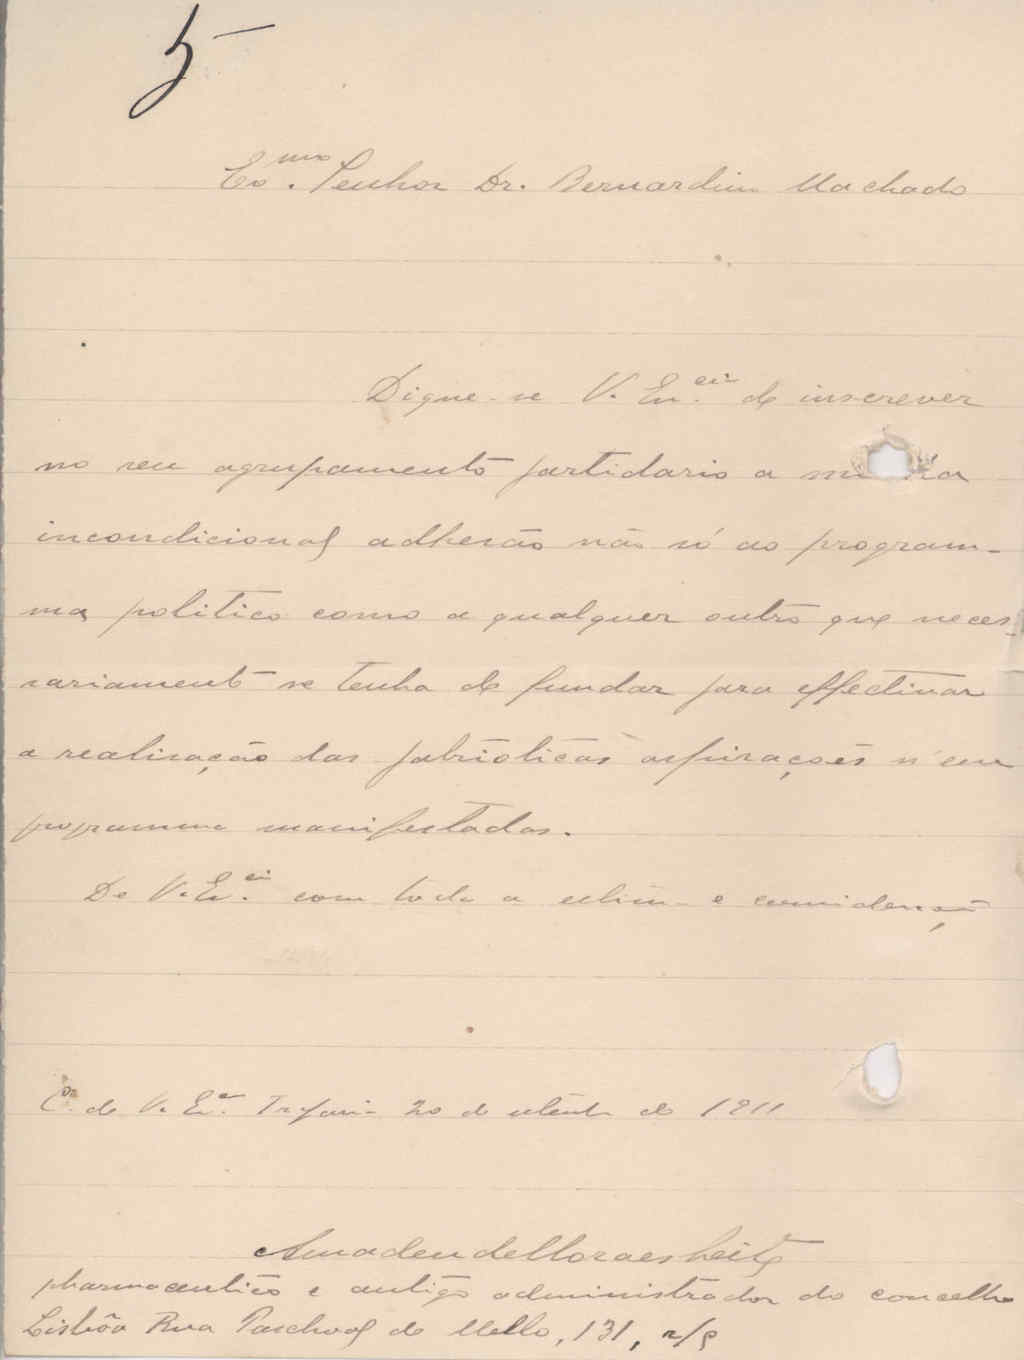 5
Exmo. Senhor Dr. Bernardino Machado
Digne-se V. Ex.cia de inscrever
no seu agrupamento partidario a minha
incondicional adhesão não só ao program-
ma politico como a qualquer outro que neces-
sariamente se tenha de fundar para effectivar
a realisação das patrioticas aspirações n'esse
programma manifestadas.
De V. Ex.cia com toda a estima e consideração
C.or de V. Ex.a Trafaria 20 de setembro de 1911
Amadeu de Moraes Leite
pharmaceutico e antigo administrador do concelho
Lisbôa Rua Paschoal de Mello, 131, r/c